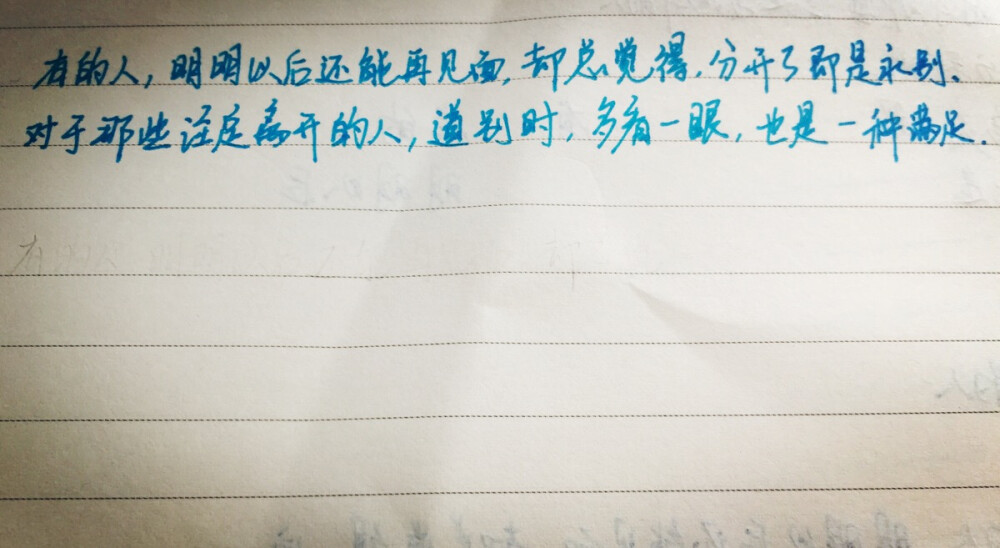 有的人，明明以后还能再见面，却总觉得，分开了即是永别。
对于那些注定离开的人，道别时，多看一眼，也是一种满足。